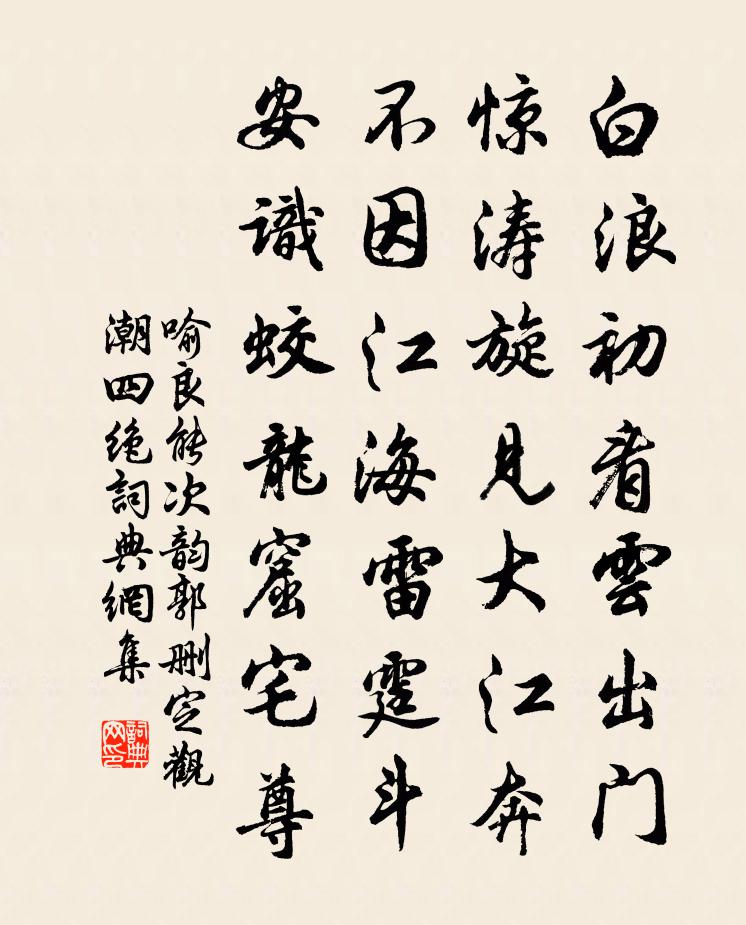 白浪初看雲出门
惊涛旋见大江奔
不因江海雷霆斗
安識蛟龍窟宅尊
喻良能次韵郭删定觀
潮四绝詞典網集
詞典网印